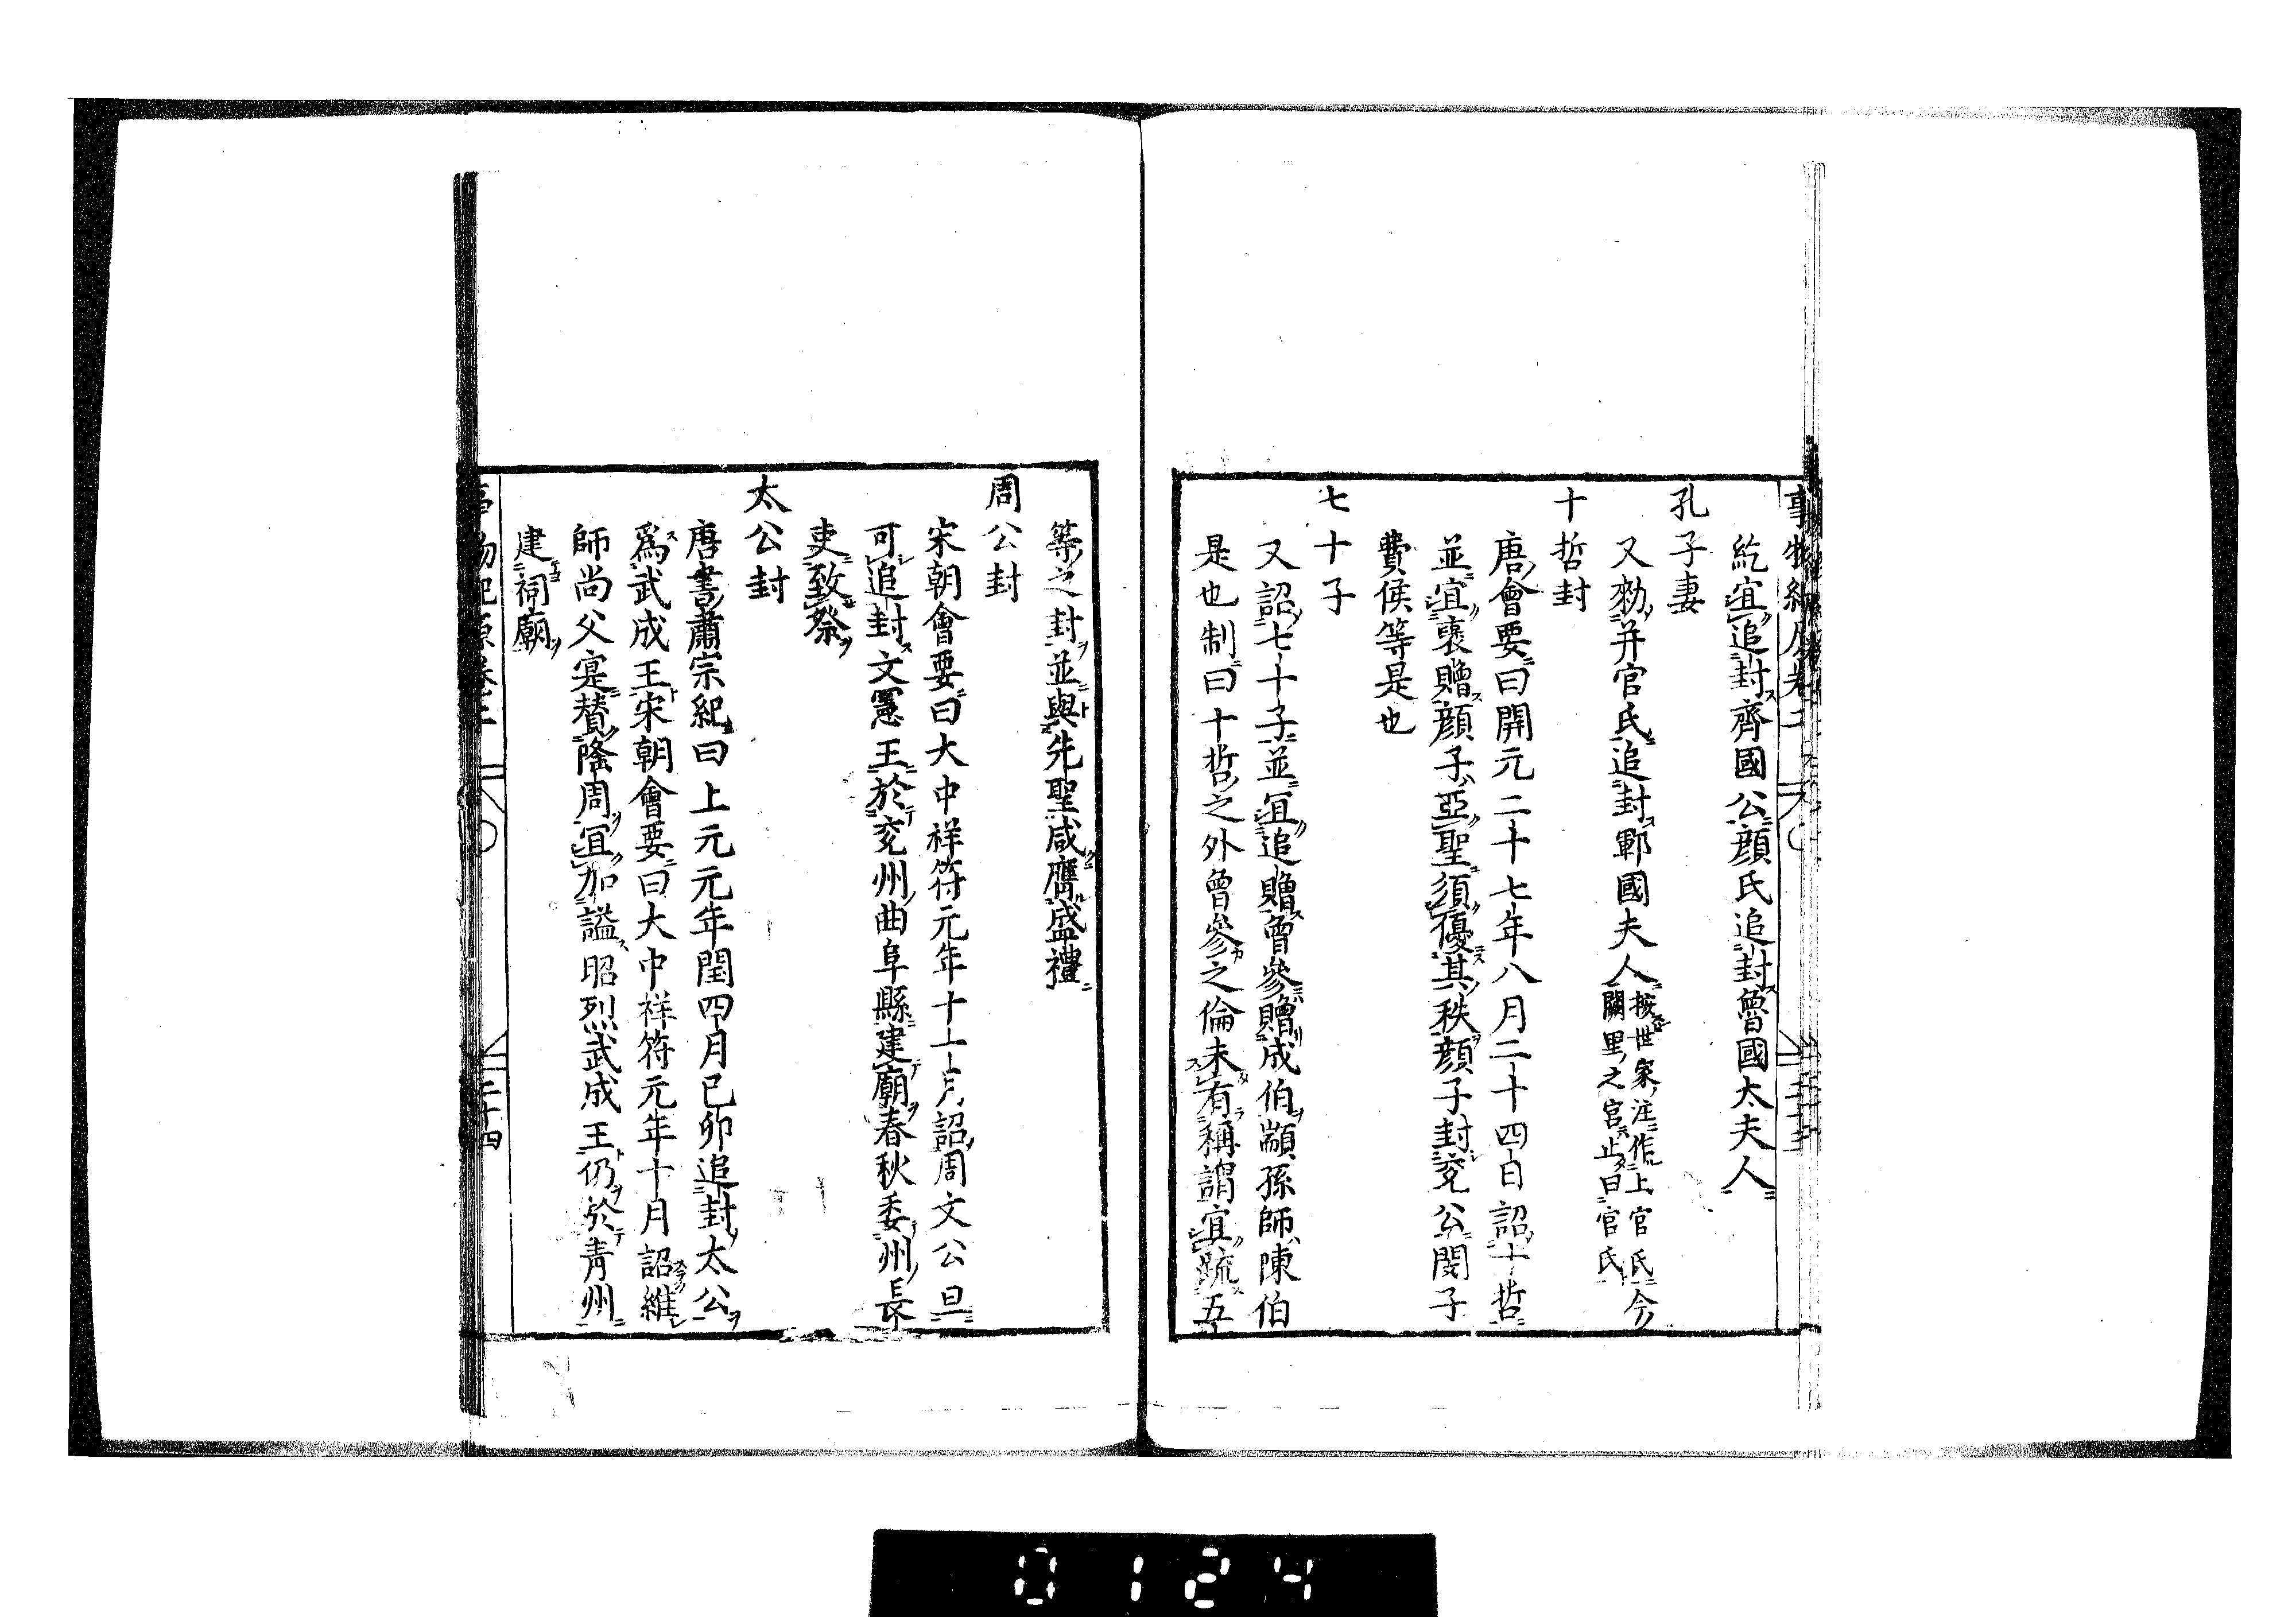 紇宜追封齊國公顔氏追封魯國太夫人
孔子妻
又勑并官氏追封鄆國夫人按世家注作上官氏今
闕里之宮止曰官氏
十哲封
唐會要曰開元二十七年八月二十四日詔十哲
並宜襃贈顔子亞聖須優其秩顔子封兗公閔子
費侯等是也
七十子
又詔七十子並宜追贈曾參贈成伯顓孫師陳伯
是也制曰十哲之外曾參之倫未有稱謂宜疏五
等之封並與先聖咸膺盛禮
周公封
宋朝會要曰大中祥符元年十一月詔周文公旦
可追封文憲王於兗州曲阜縣建廟春秋委州長
吏致祭
太公封
唐書肅宗紀曰上元元年閏四月已卯追封太公
爲武成王宋朝會要曰大中祥符元年十月詔維
師尚父寔賛隆周宜加謚昭烈武成王仍於青州
建祠廟
二十四
0124